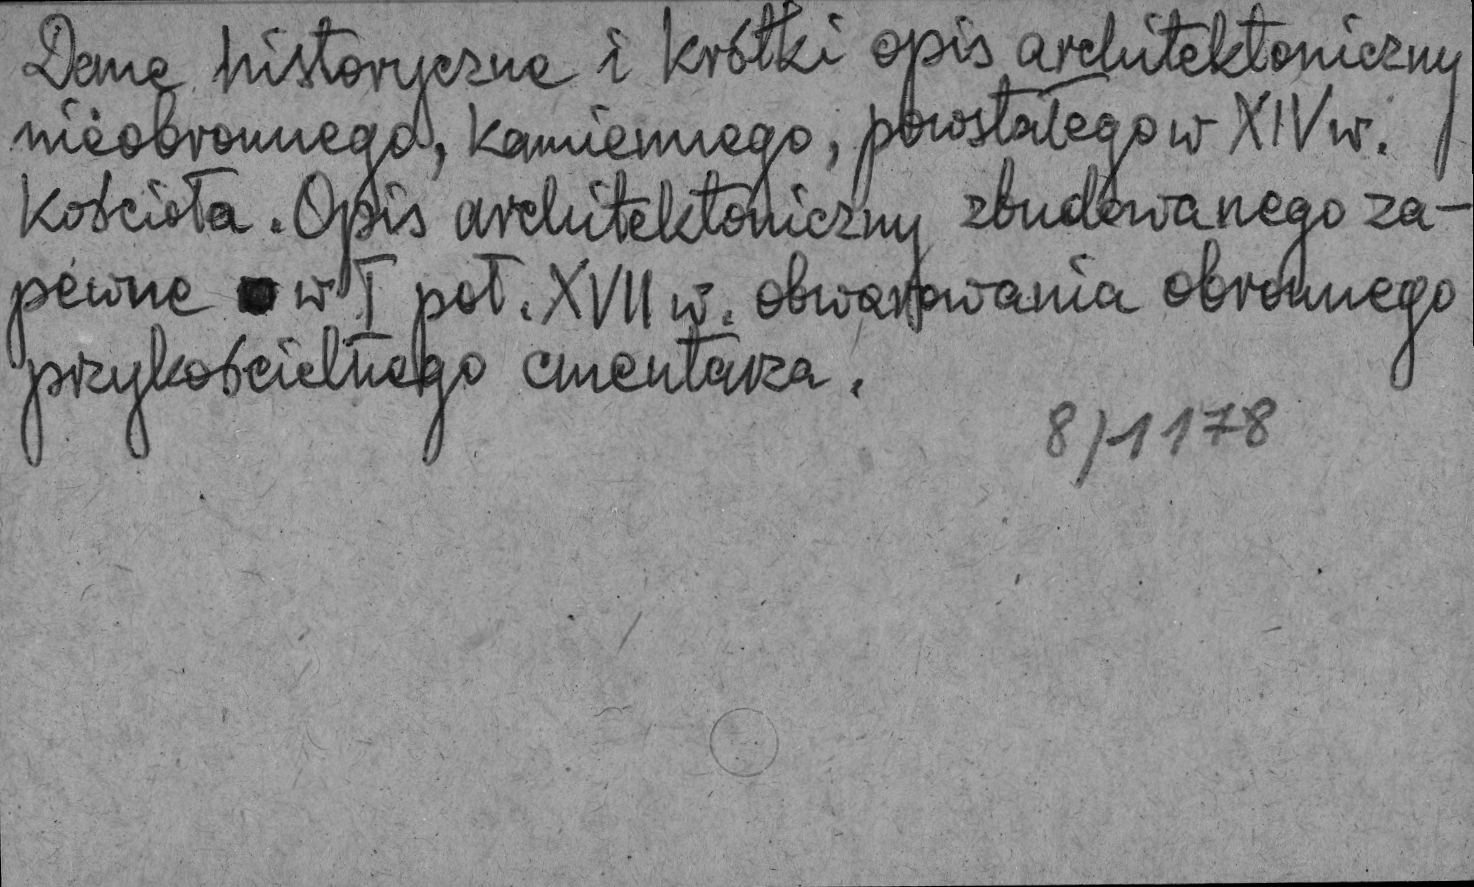 Dane historyczne i krótki opis architektoniczny
nieobronnego, kamiennego, powstałego w XIV w.
kościoła. Opis architektoniczny zbudowanego za-
pewne w I poł. XVII w. obwarowania obronnego
przykościelnego cmentarza.
8)1178